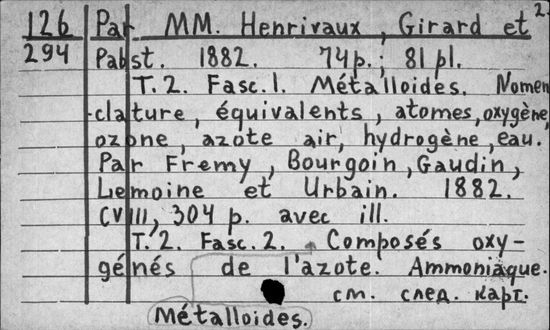 126 Par MM. Henrivaux, Girard et 2.
294 Pabst. 1882. 74 p.; 81 pl.
T. 2. Fasc. 1. Métalloides. Nomen-
clature, équivalents, atomes, oxygène,
ozone, azote air, hydrogène, eau.
Par Fremy, Bourgoin, Gaudin,
Lemoine et Urbain. 1882.
CVIII, 304 p. avec ill.
T. 2. Fasc. 2. Composés oxy-
génés de l'azote. Ammoniaque.
см. след. карт.
Métalloides.